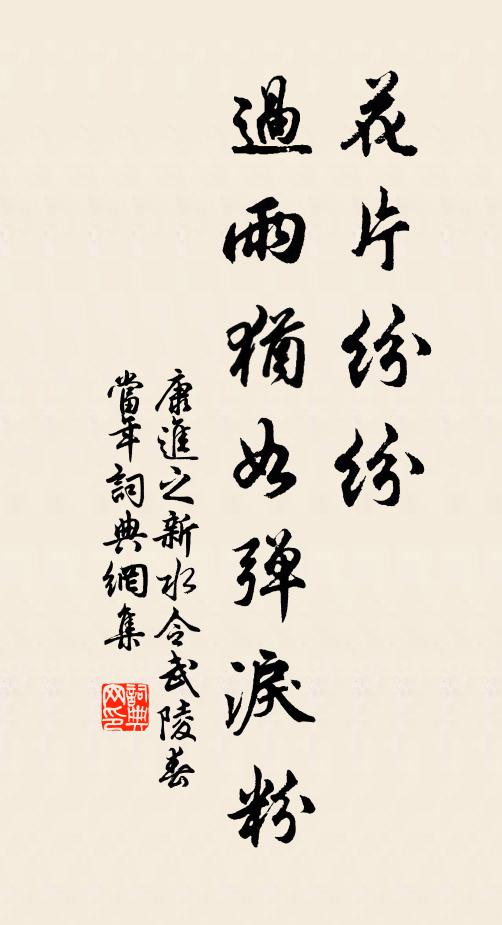 花片紛紛
過雨猶如彈淚粉
康進之新水令武陵春
當年詞典網集
詞典
网印